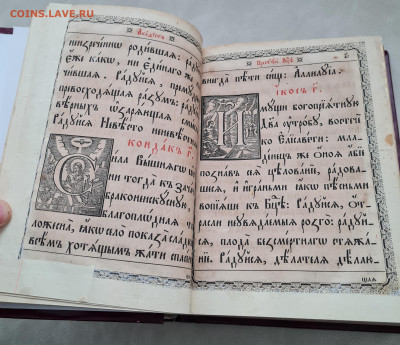 COINS.LAVE.RU
Акаѳистъ
низре́ннѡ роди́вшаѧ: ра́дꙋйсѧ,
ѧ́же ка́кѡ, ни є҆ди́нагѡ же
чи́вшаѧ. Ра́дꙋйсѧ, премꙋ́
превосходѧ́щаѧ ра́зꙋмъ: ра́дꙋ
вѣ́рныхъ ѡ҆зарѧ́ющаѧ
ра́дꙋйсѧ Невѣ́сто неневѣ́стн
конда́къ г҃.
Си́ла Вы́шнѧгѡ
ни тогда̀ къ зача́
браконеискꙋ́сн
благопло́днаѧ
ложесна̀, ꙗ҆́кѡ село̀ показа̀ сла́дко
всѣ́мъ хотѧ́щымъ жа́ти спасе́
внегда̀ пѣ́ти си́це: А҆ллилꙋ́їа.
і҆́косъ г҃.
И҆мꙋ́щи богопрїѧ́тнꙋю
Дв҃а ᲂу҆тро́бꙋ, востече́
ко Є҆лисаве́ти: мла́де
нецъ же ѻ҆́ноѧ а҆́бїе
позна́въ сеѧ̀ цѣлова́нїе, ра́дова
шесѧ, и҆ игра́ньми ꙗ҆́кѡ пѣ́сньми
вопїѧ́ше къ Бц҃ѣ: Ра́дꙋйсѧ, ѻ҆́т
расли неꙋвѧда́емыѧ розго̀: ра́дꙋй
сѧ, плода̀ безсме́ртнагѡ стѧжа́
нїе. Ра́дꙋйсѧ, дѣ́лателѧ дѣ́лаю
щаѧ